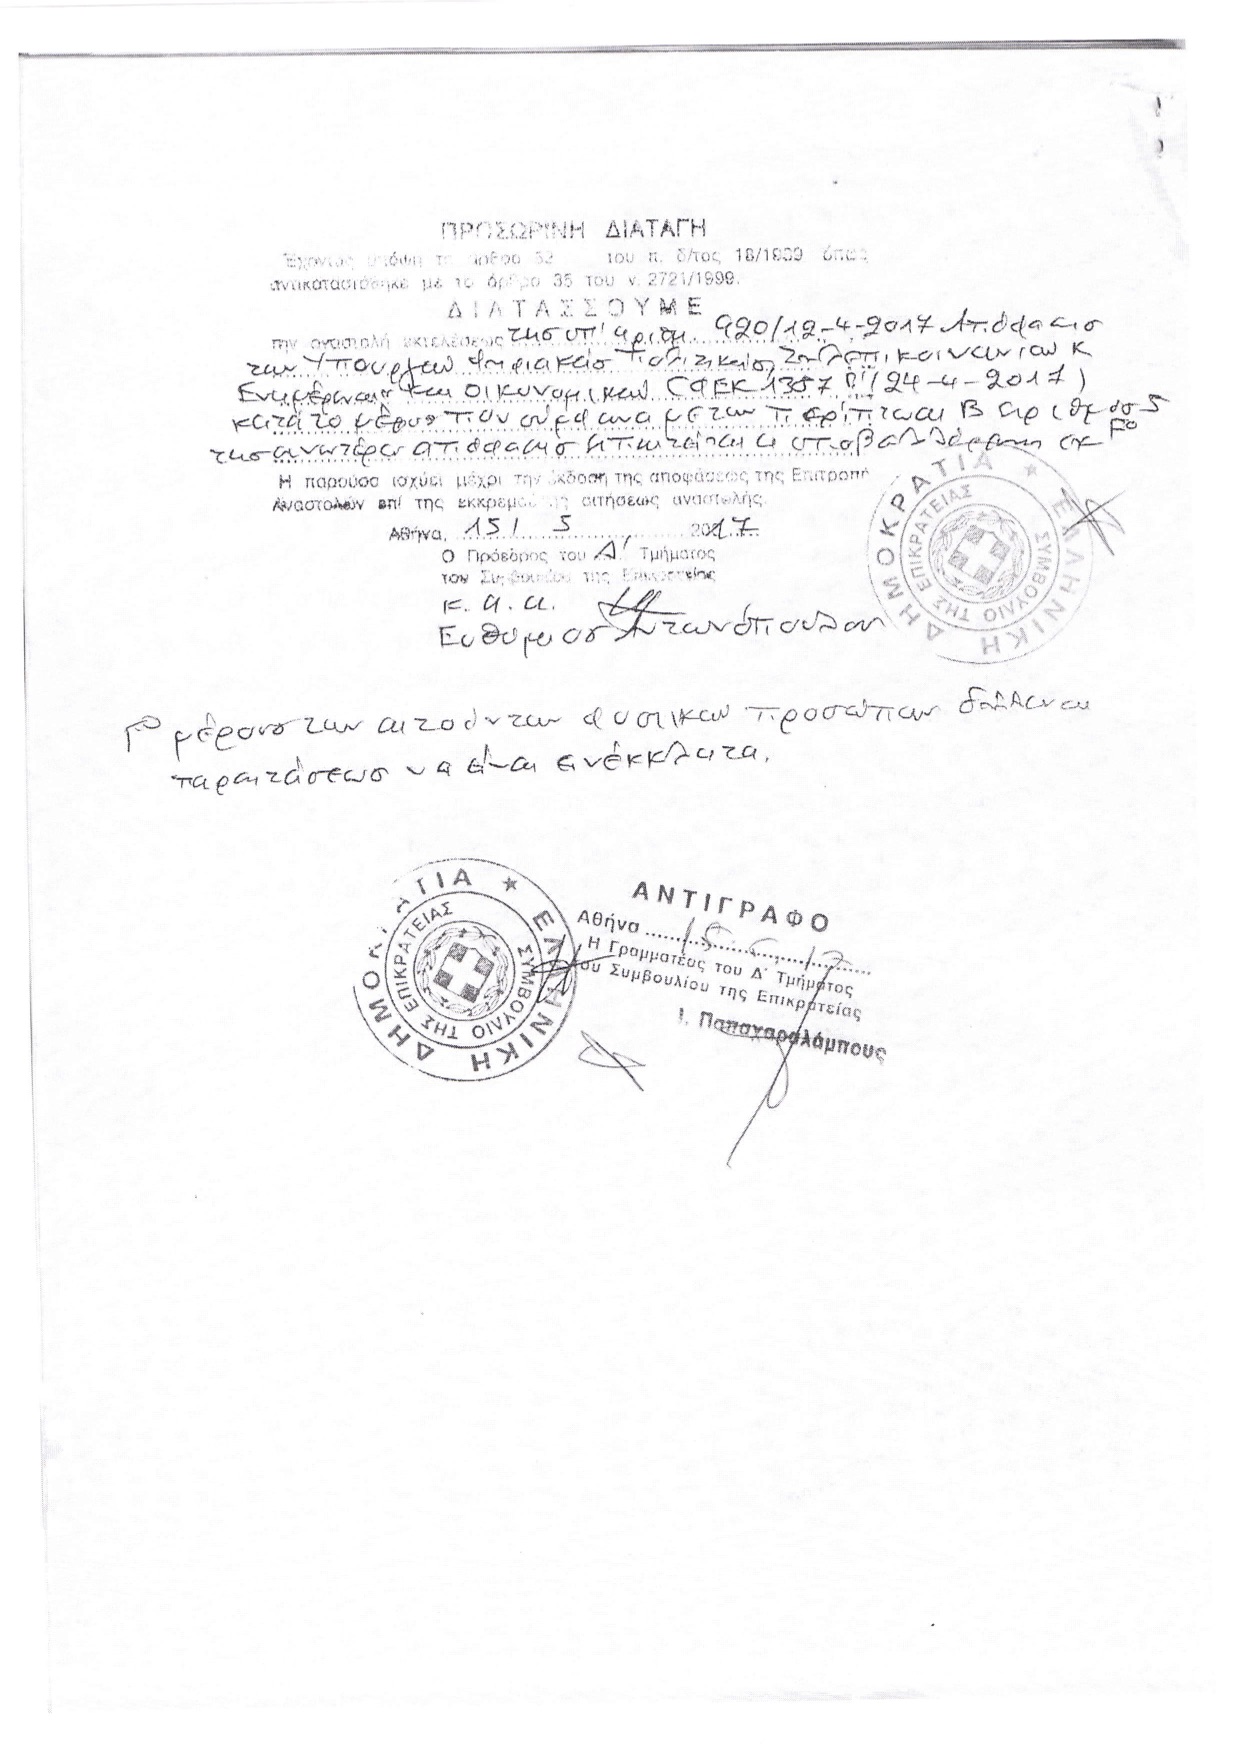 ΠΡΟΣΩΡΙΝΗ ΔΙΑΤΑΓΗ
Έχοντας υπόψη το άρθρο 52 του π. δ/τος 18/1989 όπως
αντικαταστάθηκε με το άρθρο 35 του ν. 2721/1999.
ΔΙΑΤΑΣΣΟΥΜΕ
την αναστολή εκτελέσεως της υπ' αριθμ. 920/12-4-2017 Απόφασις
των Υπουργών Ψηφιακής Πολιτικής, Τηλεπικοινωνιών κ
Ενημέρωσης και Οικονομικών (ΦΕΚ 1387 Β'/24-4-2017)
κατά το μέρος που σύμφωνα με την περίπτωση Β αριθμός 5
της ανωτέρω απόφασης απαιτείται η υποβαλλόμενη εκ Γο
Η παρούσα ισχύει μέχρι την έκδοση της αποφάσεως της Επιτροπή
Αναστολών επί της εκκρεμούσης αιτήσεως αναστολής.
Αθήνα, 15/ 5 2017
Ο Πρόεδρος του Δ' Τμήματος
του Συμβουλίου της Επικρατείας
κ. α. α.
Ευθύμιος Αντωνόπουλος
ΕΛΛΗΝΙΚΗ ΔΗΜΟΚΡΑΤΙΑ
ΣΥΜΒΟΥΛΙΟ ΤΗΣ ΕΠΙΚΡΑΤΕΙΑΣ
Γο μέρους των αιτούντων φυσικών προσώπων δήλωση
παραιτάσεως να είναι ανέκκλητα.
ΕΛΛΗΝΙΚΗ ΔΗΜΟΚΡΑΤΙΑ
ΣΥΜΒΟΥΛΙΟ ΤΗΣ ΕΠΙΚΡΑΤΕΙΑΣ
ΑΝΤΙΓΡΑΦΟ
Αθήνα 15.5.17
Η Γραμματέας του Δ' Τμήματος
ου Συμβουλίου της Επικρατείας
Ι. Παπαχαραλάμπους